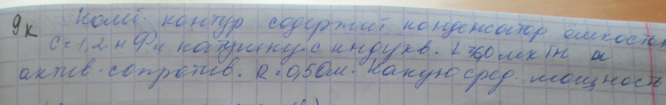 9к Колеб. контур содержит конденсатор ёмкостью
C=1,2 нФ и катушку с индукв. L=60 мкГн и
актив. сопротив. R=0,5 Ом. Какую сред. мощность